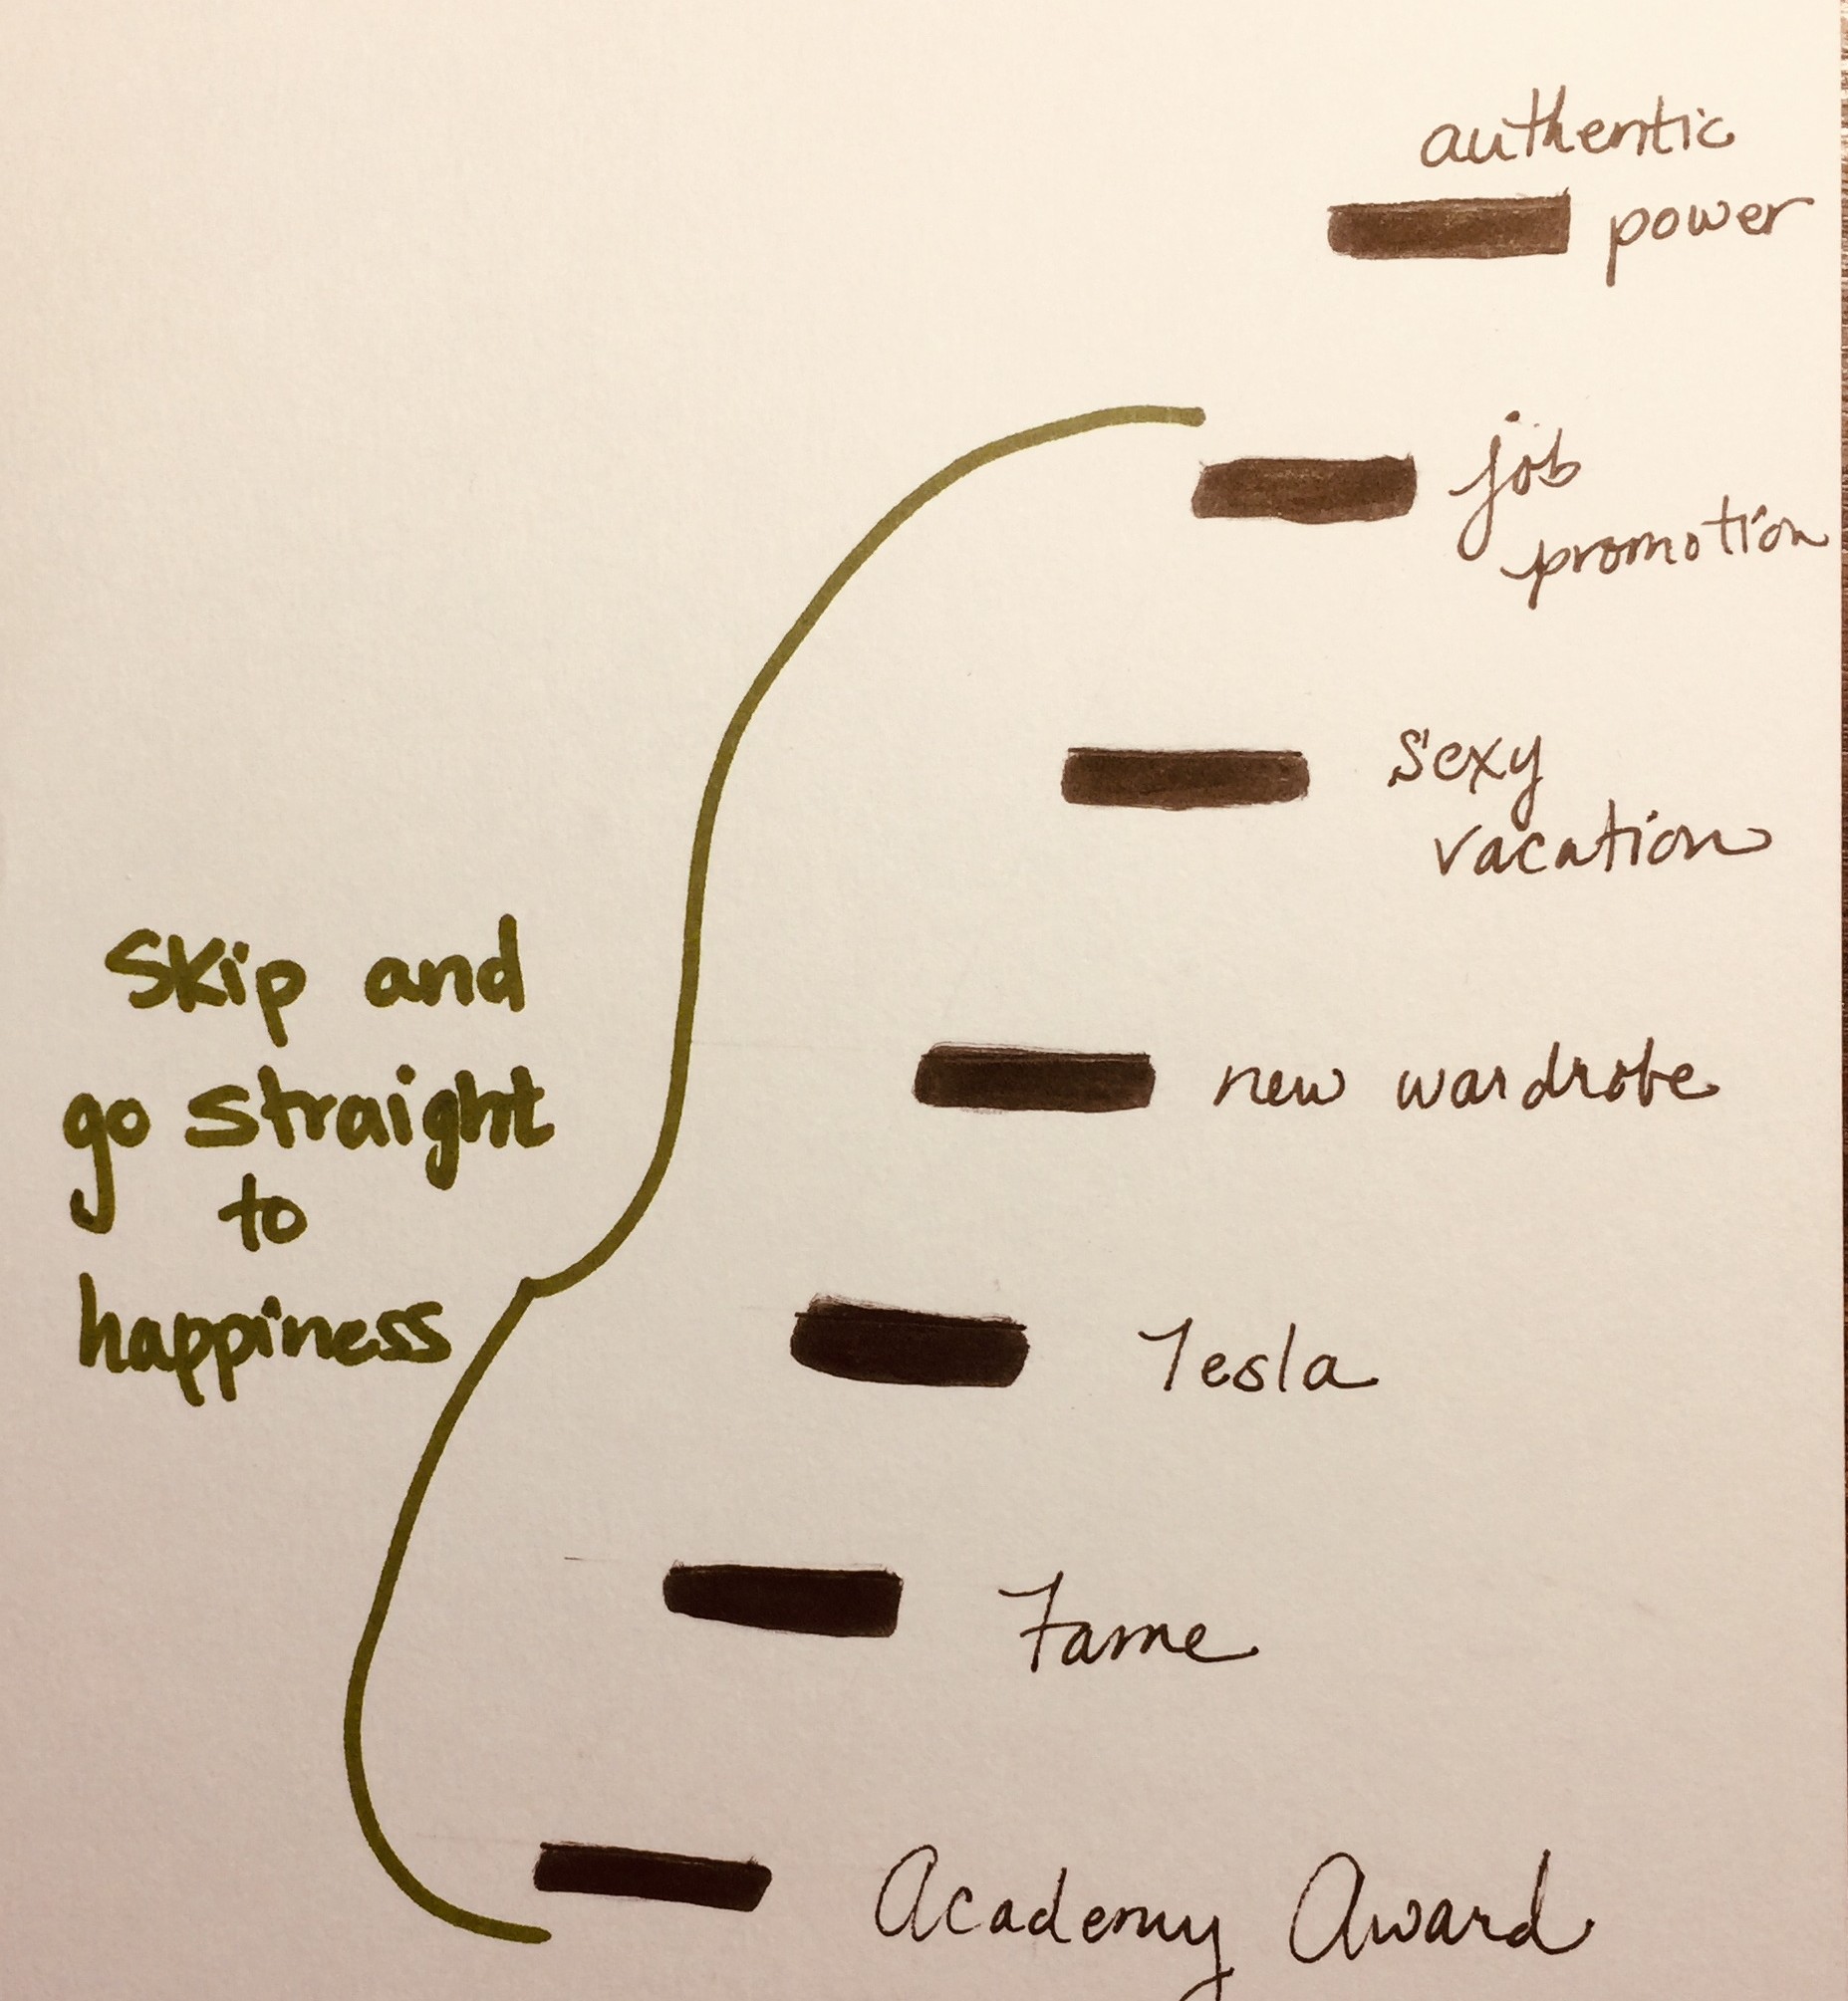 authentic
power
job
promotion
sexy
vacation
Skip and
go straight
to
happiness
new wardrobe
Tesla
Fame
Academy Award